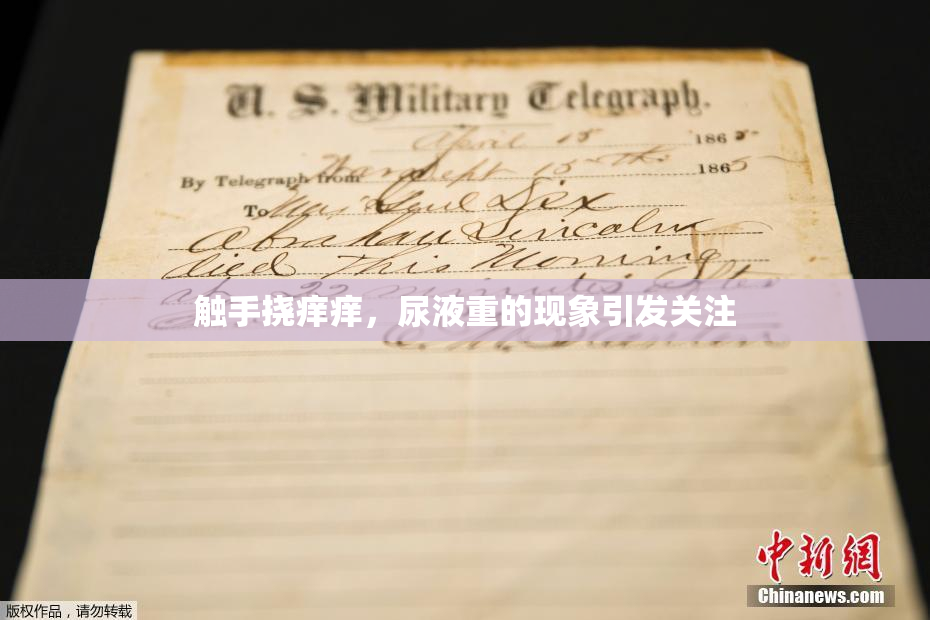 U. S. Military Telegraph.
April 15 1865
By Telegraph from War Dept 15th 1865
To Maj Genl Dix
Abraham Lincoln
died This Morning
at 22 minutes after
触手挠痒痒，尿液重的现象引发关注
中新网
Chinanews.com
版权作品，请勿转载